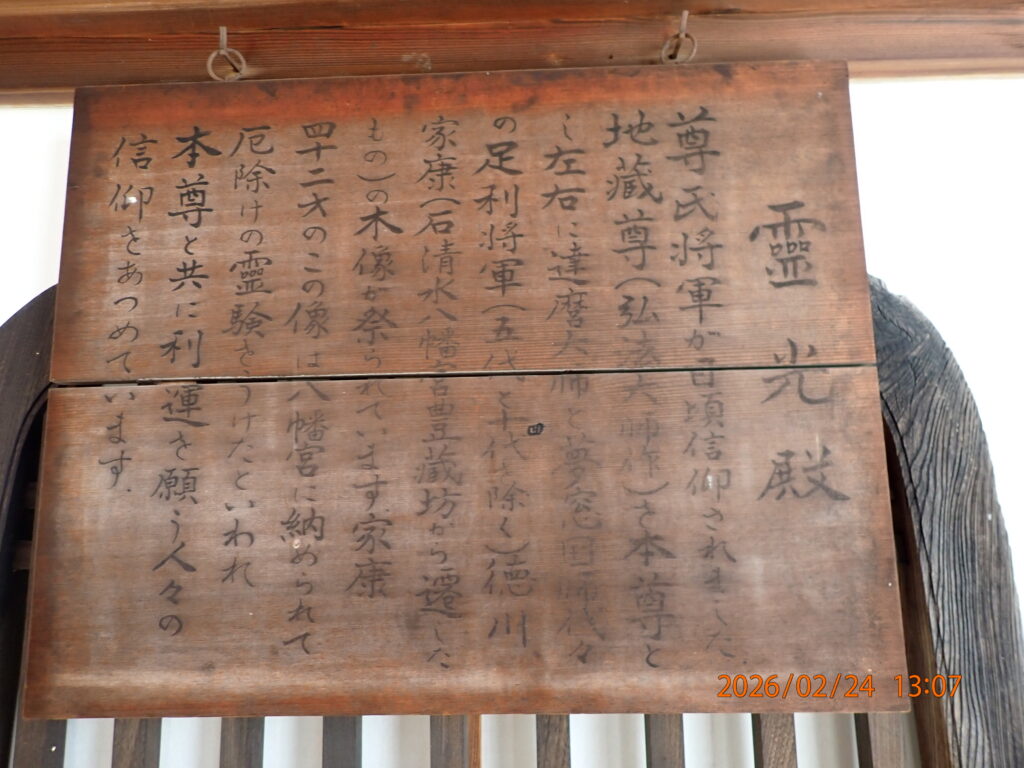 靈光殿
尊氏将軍が日頃信仰されました
地藏尊(弘法大師作)を本尊と
し左右に達磨大師と夢窓国師代々
の足利将軍(五代と十四代を除く)徳川
家康(石清水八幡宮豊蔵坊から遷した
もの)の木像が祭られています家康
四十二才のこの像は八幡宮に納められて
厄除けの靈験をうけたといわれ
本尊と共に利運を願う人々の
信仰をあつめています.
2026/02/24 13:07